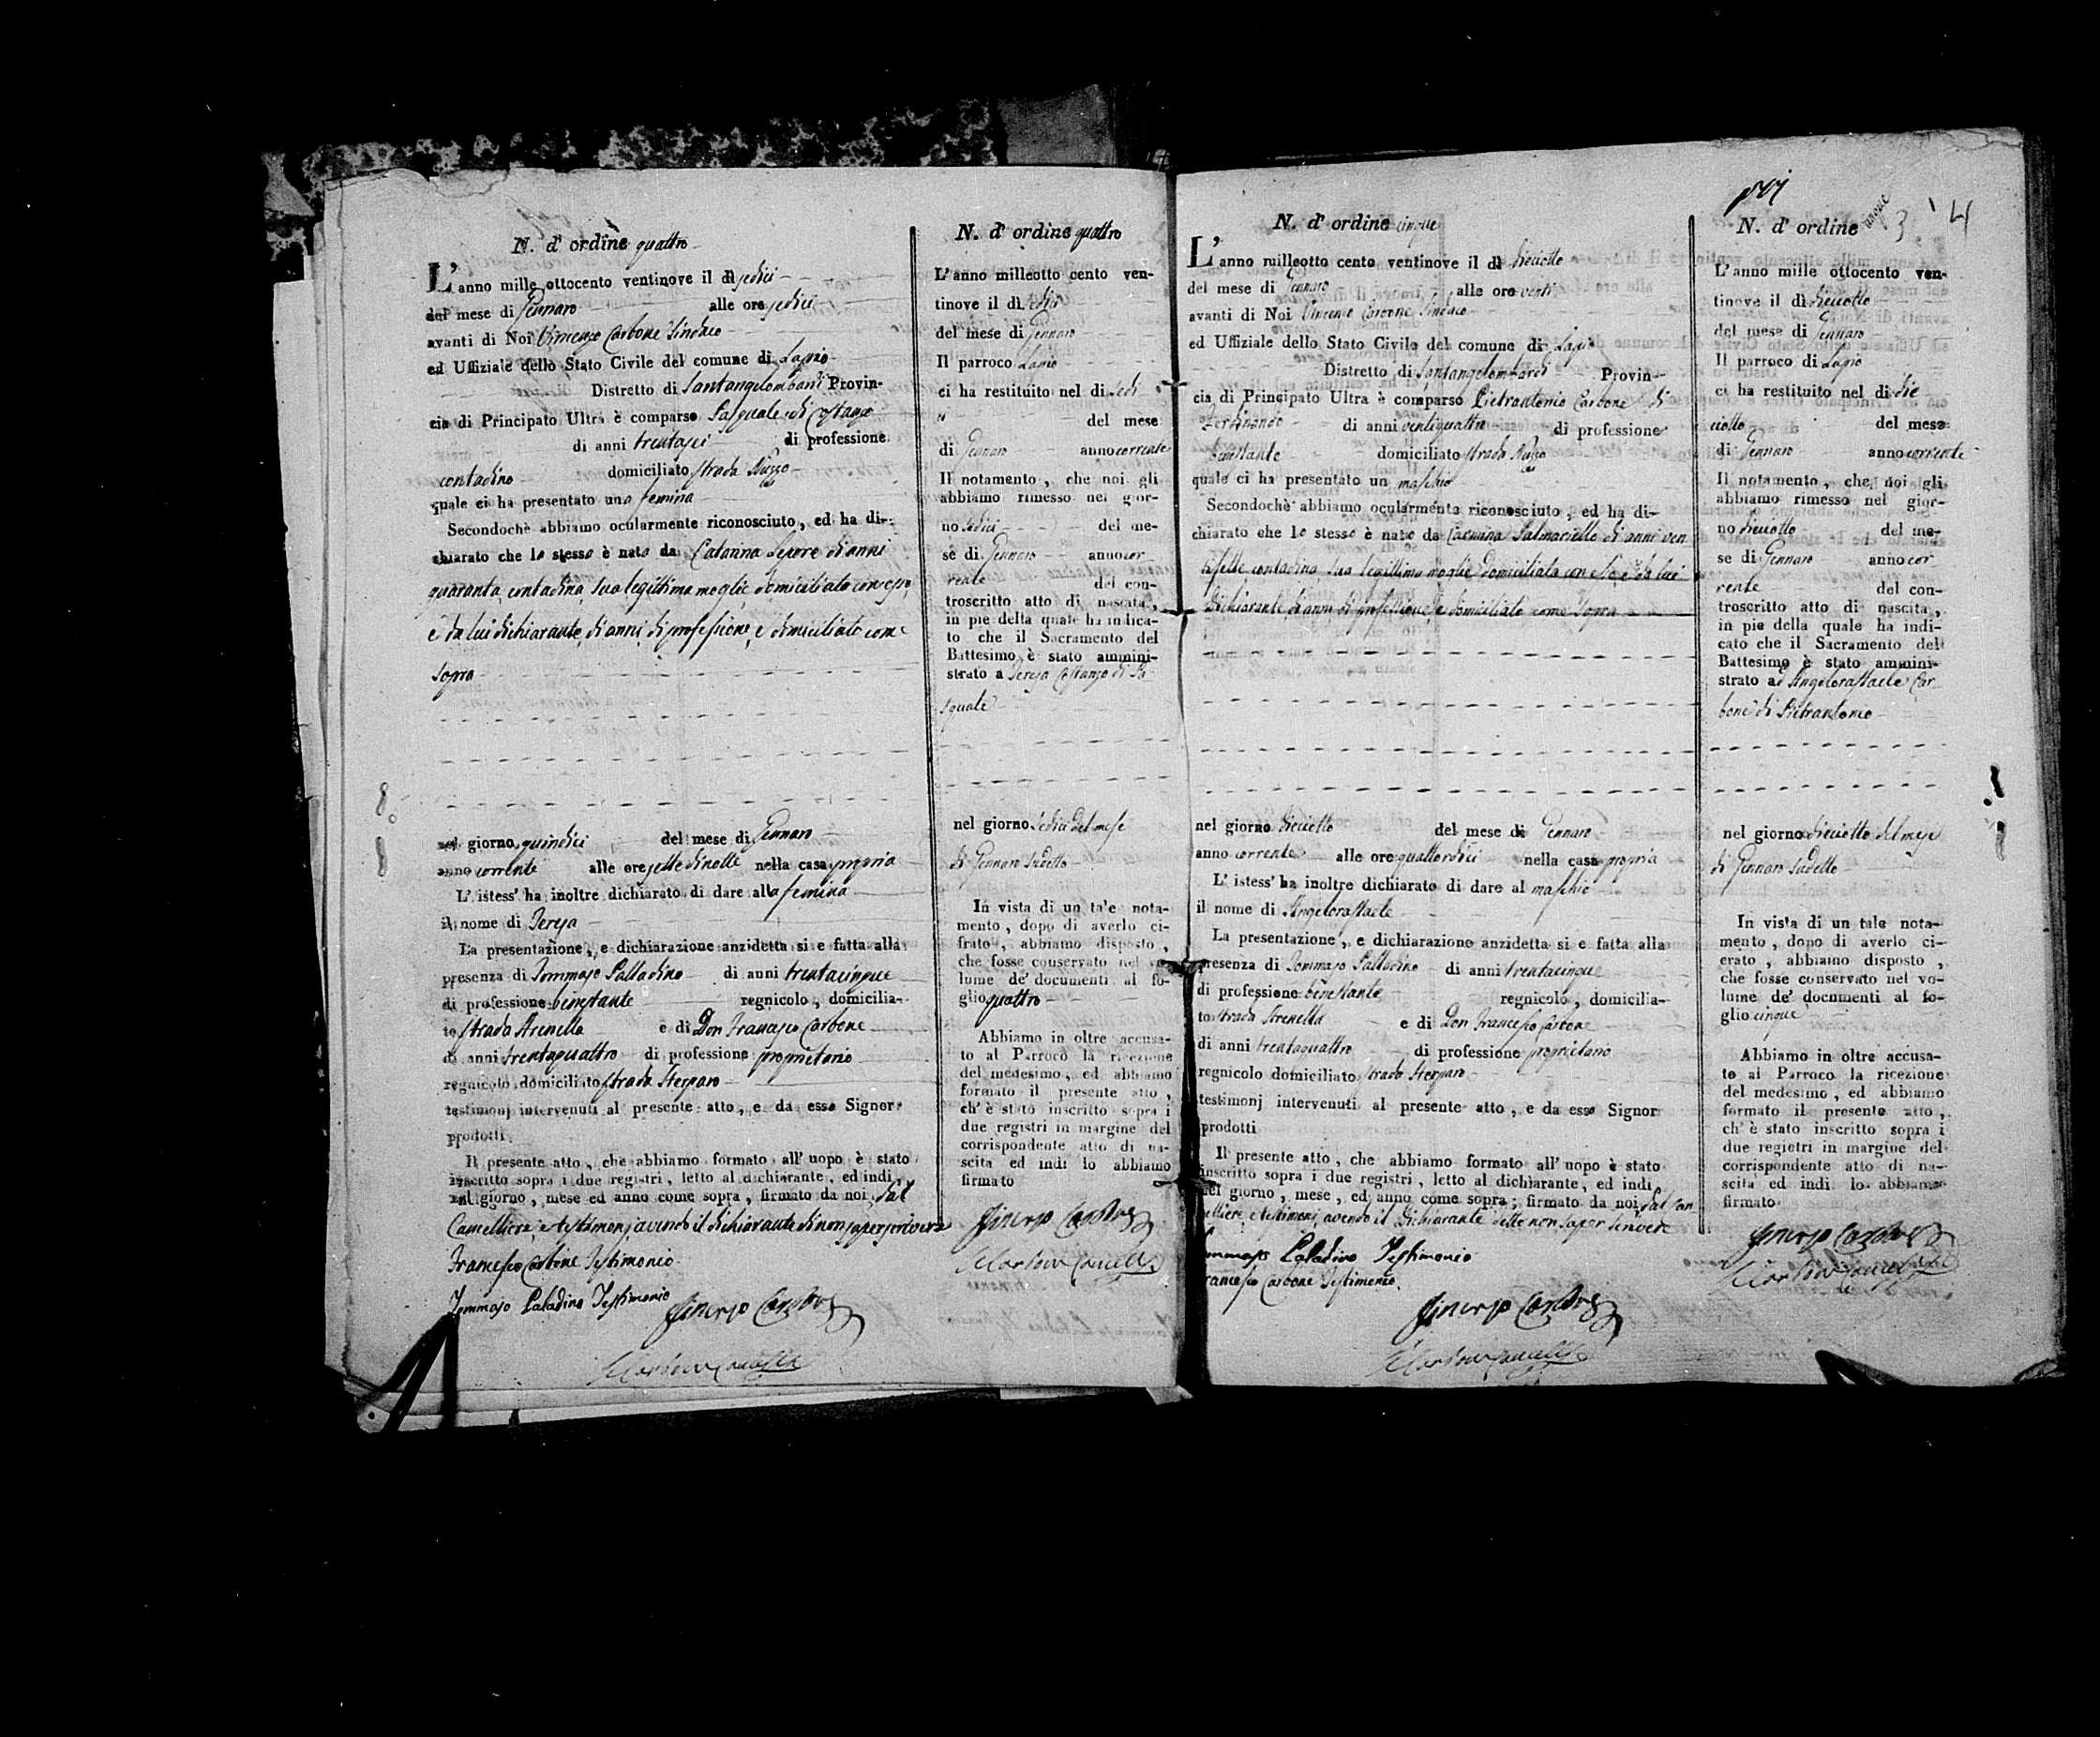 N. d' ordine quattro
L' anno mille ottocento ventinove il dì sedici
del mese di Gennaro alle ore sedici
avanti di Noi Vincenzo Carbone Sindaco
ed Uffiziale dello Stato Civile del comune di Lapio
Distretto di Santangelombardi Provin-
cia di Principato Ultra è comparso Pasquale di Costanzo
di anni trentasei di professione
contadino domiciliato strada Nuzzo
quale ci ha presentato una femina
Secondochè abbiamo ocularmente riconosciuto, ed ha di-
chiarato che lo stesso è nato da Catarina Lepore di anni
quaranta, contadina, sua legittima moglie domiciliata con esso,
e da lui dichiarante, di anni, di professione, e domiciliato come
sopra
nel giorno quindici del mese di Gennaro
anno corrente alle ore sette di notte nella casa propria
L' istess' ha inoltre dichiarato di dare alla femina
il nome di Teresa
La presentazione, e dichiarazione anzidetta si e fatta alla
presenza di Tommaso Palladino di anni trentacinque
di professione benestante regnicolo, domicilia-
to strada Arenella e di Don Francesco Carbone
di anni trentaquattro di professione proprietario
regnicolo domiciliato strada Sterparo
testimonj intervenuti al presente atto, e da esso Signor
prodotti.
Il presente atto, che abbiamo formato all' uopo è stato
inscritto sopra i due registri, letto al dichiarante, ed indi
nel giorno, mese ed anno come sopra, firmato da noi, dal
Cancelliere, e testimonj avendo il dichiarante di non saper scrivere
Francesco Carbone Testimonio
Tommaso Paladino Testimonio
Vincenzo Carbone
Carbone Cancelliere
N. d' ordine quattro
L' anno milleotto cento ven-
tinove il dì sedici
del mese di Gennaro
Il parroco Lapio
ci ha restituito nel dì sedi
del mese
di Gennaro anno corrente
Il notamento, che noi gli
abbiamo rimesso nel gior-
no sedici del me-
se di Gennaro anno cor
rente del con-
troscritto atto di nascita,
in piè della quale ha indica-
to che il Sacramento del
Battesimo è stato ammini-
strato a Teresa Costanzo di Pa
squale
nel giorno sedici del mese
di Gennaro sudetto
In vista di un tale nota-
mento, dopo di averlo ci-
frato, abbiamo disposto,
che fosse conservato nel vo-
lume de' documenti al fo-
glio quattro
Abbiamo in oltre accusa-
to al Parroco la ricezione
del medesimo, ed abbiamo
formato il presente atto,
ch' è stato inscritto sopra i
due registri in margine del
corrispondente atto di na-
scita ed indi lo abbiamo
firmato
Vincenzo Carbone
Carbone Cancelliere
N. d' ordine cinque
L' anno milleotto cento ventinove il dì dieciotto
del mese di Gennaro alle ore venti
avanti di Noi Vincenzo Carbone Sindaco
ed Uffiziale dello Stato Civile del comune di Lapio
Distretto di Santangelombardi Provin-
cia di Principato Ultra è comparso Pietrantonio Carbone di
Ferdinando di anni ventiquattro di professione
benestante domiciliato strada Nuzzo
quale ci ha presentato un maschio
Secondochè abbiamo ocularmente riconosciuto, ed ha di-
chiarato che lo stesso è nato da Carmina Palmariello di anni ven
tisette, contadina, sua legittima moglie domiciliata con esso, e da lui
dichiarante, di anni, di professione, e domiciliato come sopra
nel giorno dieciotto del mese di Gennaro
anno corrente alle ore quattordici nella casa propria
L' istess' ha inoltre dichiarato di dare al maschio
il nome di Angeloraffaele
La presentazione, e dichiarazione anzidetta si e fatta alla
presenza di Tommaso Palladino di anni trentacinque
di professione benestante regnicolo, domicilia-
to strada Arenella e di Don Francesco Carbone
di anni trentaquattro di professione proprietario
regnicolo domiciliato strada Sterparo
testimonj intervenuti al presente atto, e da esso Signor
prodotti
Il presente atto, che abbiamo formato all' uopo è stato
inscritto sopra i due registri, letto al dichiarante, ed indi
nel giorno, mese, ed anno come sopra; firmato da noi, dal Can
celliere, e testimonj, avendo il dichiarante detto non saper scrivere
Tommaso Paladino Testimonio
Francesco Carbone Testimonio
Vincenzo Carbone
Carbone Cancelliere
3 4
N. d' ordine cinque
L' anno mille ottocento ven-
tinove il dì dieciotto
del mese di Gennaro
Il parroco di Lapio
ci ha restituito nel dì die
ciotto del mese
di Gennaro anno corrente
Il notamento, che noi gli
abbiamo rimesso nel gior-
no dieciotto del me-
se di Gennaro anno cor
rente del con-
troscritto atto di nascita,
in piè della quale ha indi-
cato che il Sacramento del
Battesimo è stato ammini-
strato ad Angeloraffaele Car
bone di Pietrantonio
nel giorno dieciotto del mese
di Gennaro sudetto
In vista di un tale nota-
mento, dopo di averlo ci-
erato, abbiamo disposto,
che fosse conservato nel vo-
lume de' documenti al fo-
glio cinque
Abbiamo in oltre accusa-
to al Parroco la ricezione
del medesimo, ed abbiamo
formato il presente atto,
ch' è stato inscritto sopra i
due registri in margine del
corrispondente atto di na-
scita ed indi lo abbiamo
firmato.
Vincenzo Carbone
Carbone Cancelliere